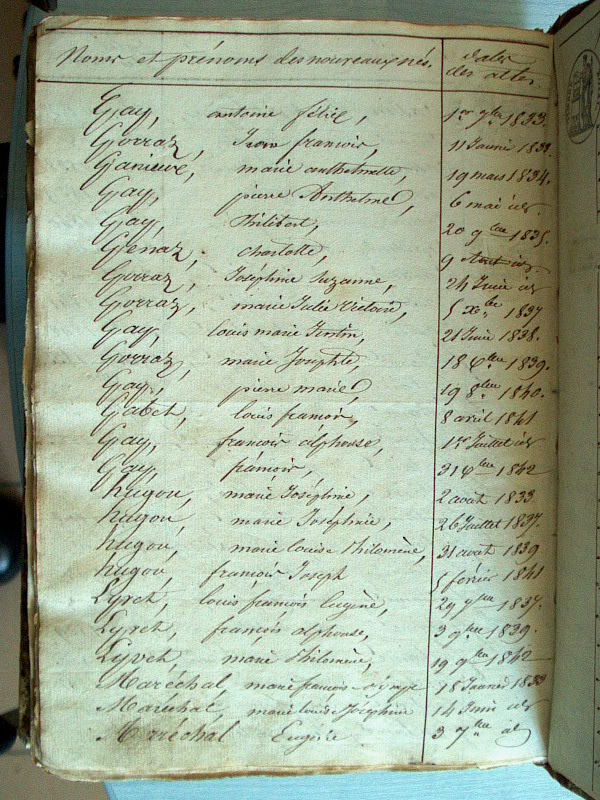 Noms et prénoms des nouveaux nés. dates des actes.
Gay, antoine félix, 1er 7bre 1833.
Gorraz, Jean françois, 11 Janvier 1833.
marie anthelmette, 19 mars 1834.
Gay, pierre Anthelme, 6 mai id.
Gay, Philibert, 20 9bre 1835.
Genaz, charlotte, 9 Aout id.
Gorraz, Joséphine Suzanne, 24 Juin id
Gorraz, marie Julie Victoire, 5 xbre 1837
Gay, louis marie 21 Juin 1838.
Gorraz, marie Josephte, 18 1839.
Gay, pierre marie, 19 8bre 1840.
Gabet, louis françois, 8 avril 1841
Gay, françois alphonse, 1er Juillet id
Gay, françois, 31 1842
hugou, marie Joséphine, 2 août 1833.
hugou, marie Joséphine, 26 Juillet 1837.
hugou, marie louise Philomène, 31 août 1839
hugou, françois Joseph 5 février 1841
Lyvet, louis françois Eugène, 29 1837.
Lyvet, françois alphonse, 3 9bre 1839.
Lyvet, marie Philomène, 19 9bre 1842
Maréchal, marie françoise olympe 18 Janvier 1833
Maréchal, marie louise Joséphine 14 Juin id
Maréchal Eugénie 3 7bre id